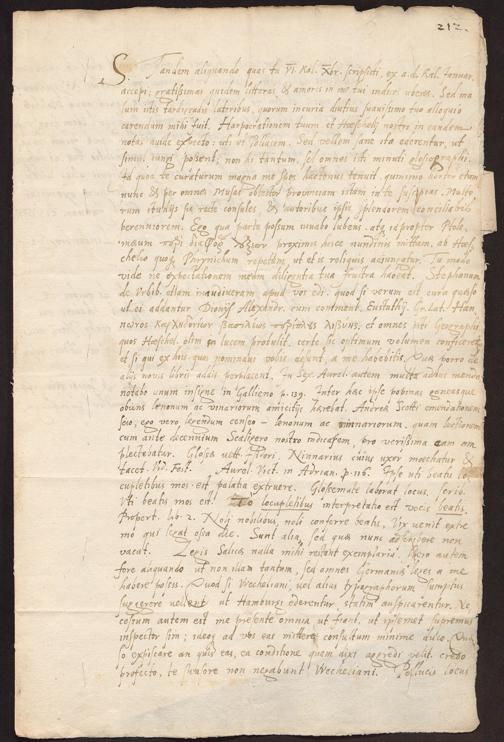 212.
S. Tandem aliquando quas tu VI. Kal. Xbr. scripsisti, ex a. d. Kal. Januar.
accepi; gratissimas quidem litteras, & amoris in me tui indices veras. Sed ma
lum istis tardigradis latoribus, quorum incuria diutius suavissimo tuo alloquio
carendum mihi fuit. Harpocrationem tuum et Hoeschelij nostri in eundem
notas avide expecto: uti et Pollucem. Sed vellem sane ita ederentur, ut
simul iungi possent, non hi tantum, sed omnes isti minuti glossographi.
Id quoe te curaturum magna me spes hactenus tenuit, quin imo hortor etiam
nunc & per omnes Musas obtestor provinciam istam in te suscipias. Multo
rum studijs sic recte consules, & autoribus ipsis splendorem conciliabis
perenniorem. Ego qua parte possum iuvabo lubens. atque propter Ptole
mæum περὶ διαφορ. λέξεων proximis hisce nundinis mittam, ab Hoes
chelio quoque Phrynichum repetam, ut et is reliquis adiungatur. Tu modo
vide ne expectationem meam diligentia tua frustra habeat. Stephanum
de Urbib. etiam inaudiveram apud vos edi. quod si verum est cura quæso
ut ei addantur Dionys. Alexandr. cum comment. Eustathij Gr. Lat. Han
nonis Καρχηδονίων βασιλέως περίπλους Λιβύης, et omnes isti Geographi,
quos Hoeschel. olim in lucem protulit. certe sic optimum volumen conficeret
et si qui ex his quos nominavi vobis desunt, a me habebitis. Quæ porro de
alijs novis libris addis perplacent. In Sex. Aurel. autem multa adhuc menda.
notabo unum insigne in Gallieno p. 139. Inter hæc ipse popinas ganeasque
obiens lenonum ac vinariorum amicitijs hærebat. Andreæ Scotti emendationem
scio, ego vero legendum censeo - lenonum ac minariorum, quam lectionem
cum ante decennium Scaligero nostro indicassem, pro verissima eam am
plectebatur. Glossæ vett. Isidori. Ninnarius cuius uxor moechatur &
tacet. Vid. Fest. Aurel. Vict. in Adrian. p. 116. Ipse uti beatis lo
cupletibus mos est palatia extruere. Glossemate laborat locus. scribo.
Uti beatis mos est. To locupletibus interpretatio est vocis beatis.
Propert. lib. 2. Noli nobilibus, noli conferre beatis, Vix venit extre
mo qui legat ossa die. Sunt alia, sed quæ nunc adscribere non
vacat. Legis Salicæ nulla mihi restant exemplaria. Spero autem
fore aliquando ut non illam tantum, sed omnes Germanicas leges a me
habere possis. Quod si Wecheliani, vel alius typographorum sumptus
suggerere vellent ut Hamburgi ederentur, statim auspicarentur. Ne
cessum autem est me præsente omnia ut fiant, ut ipsemet supremus
inspector sim; ideoque ad vos eas mittere consultum minime duco. Quæ
so expiscare an quis eas, ea conditione quam dixi aggredi velit. credo
profecto, te suasore non negabunt Wecheliani. Pollucis locus